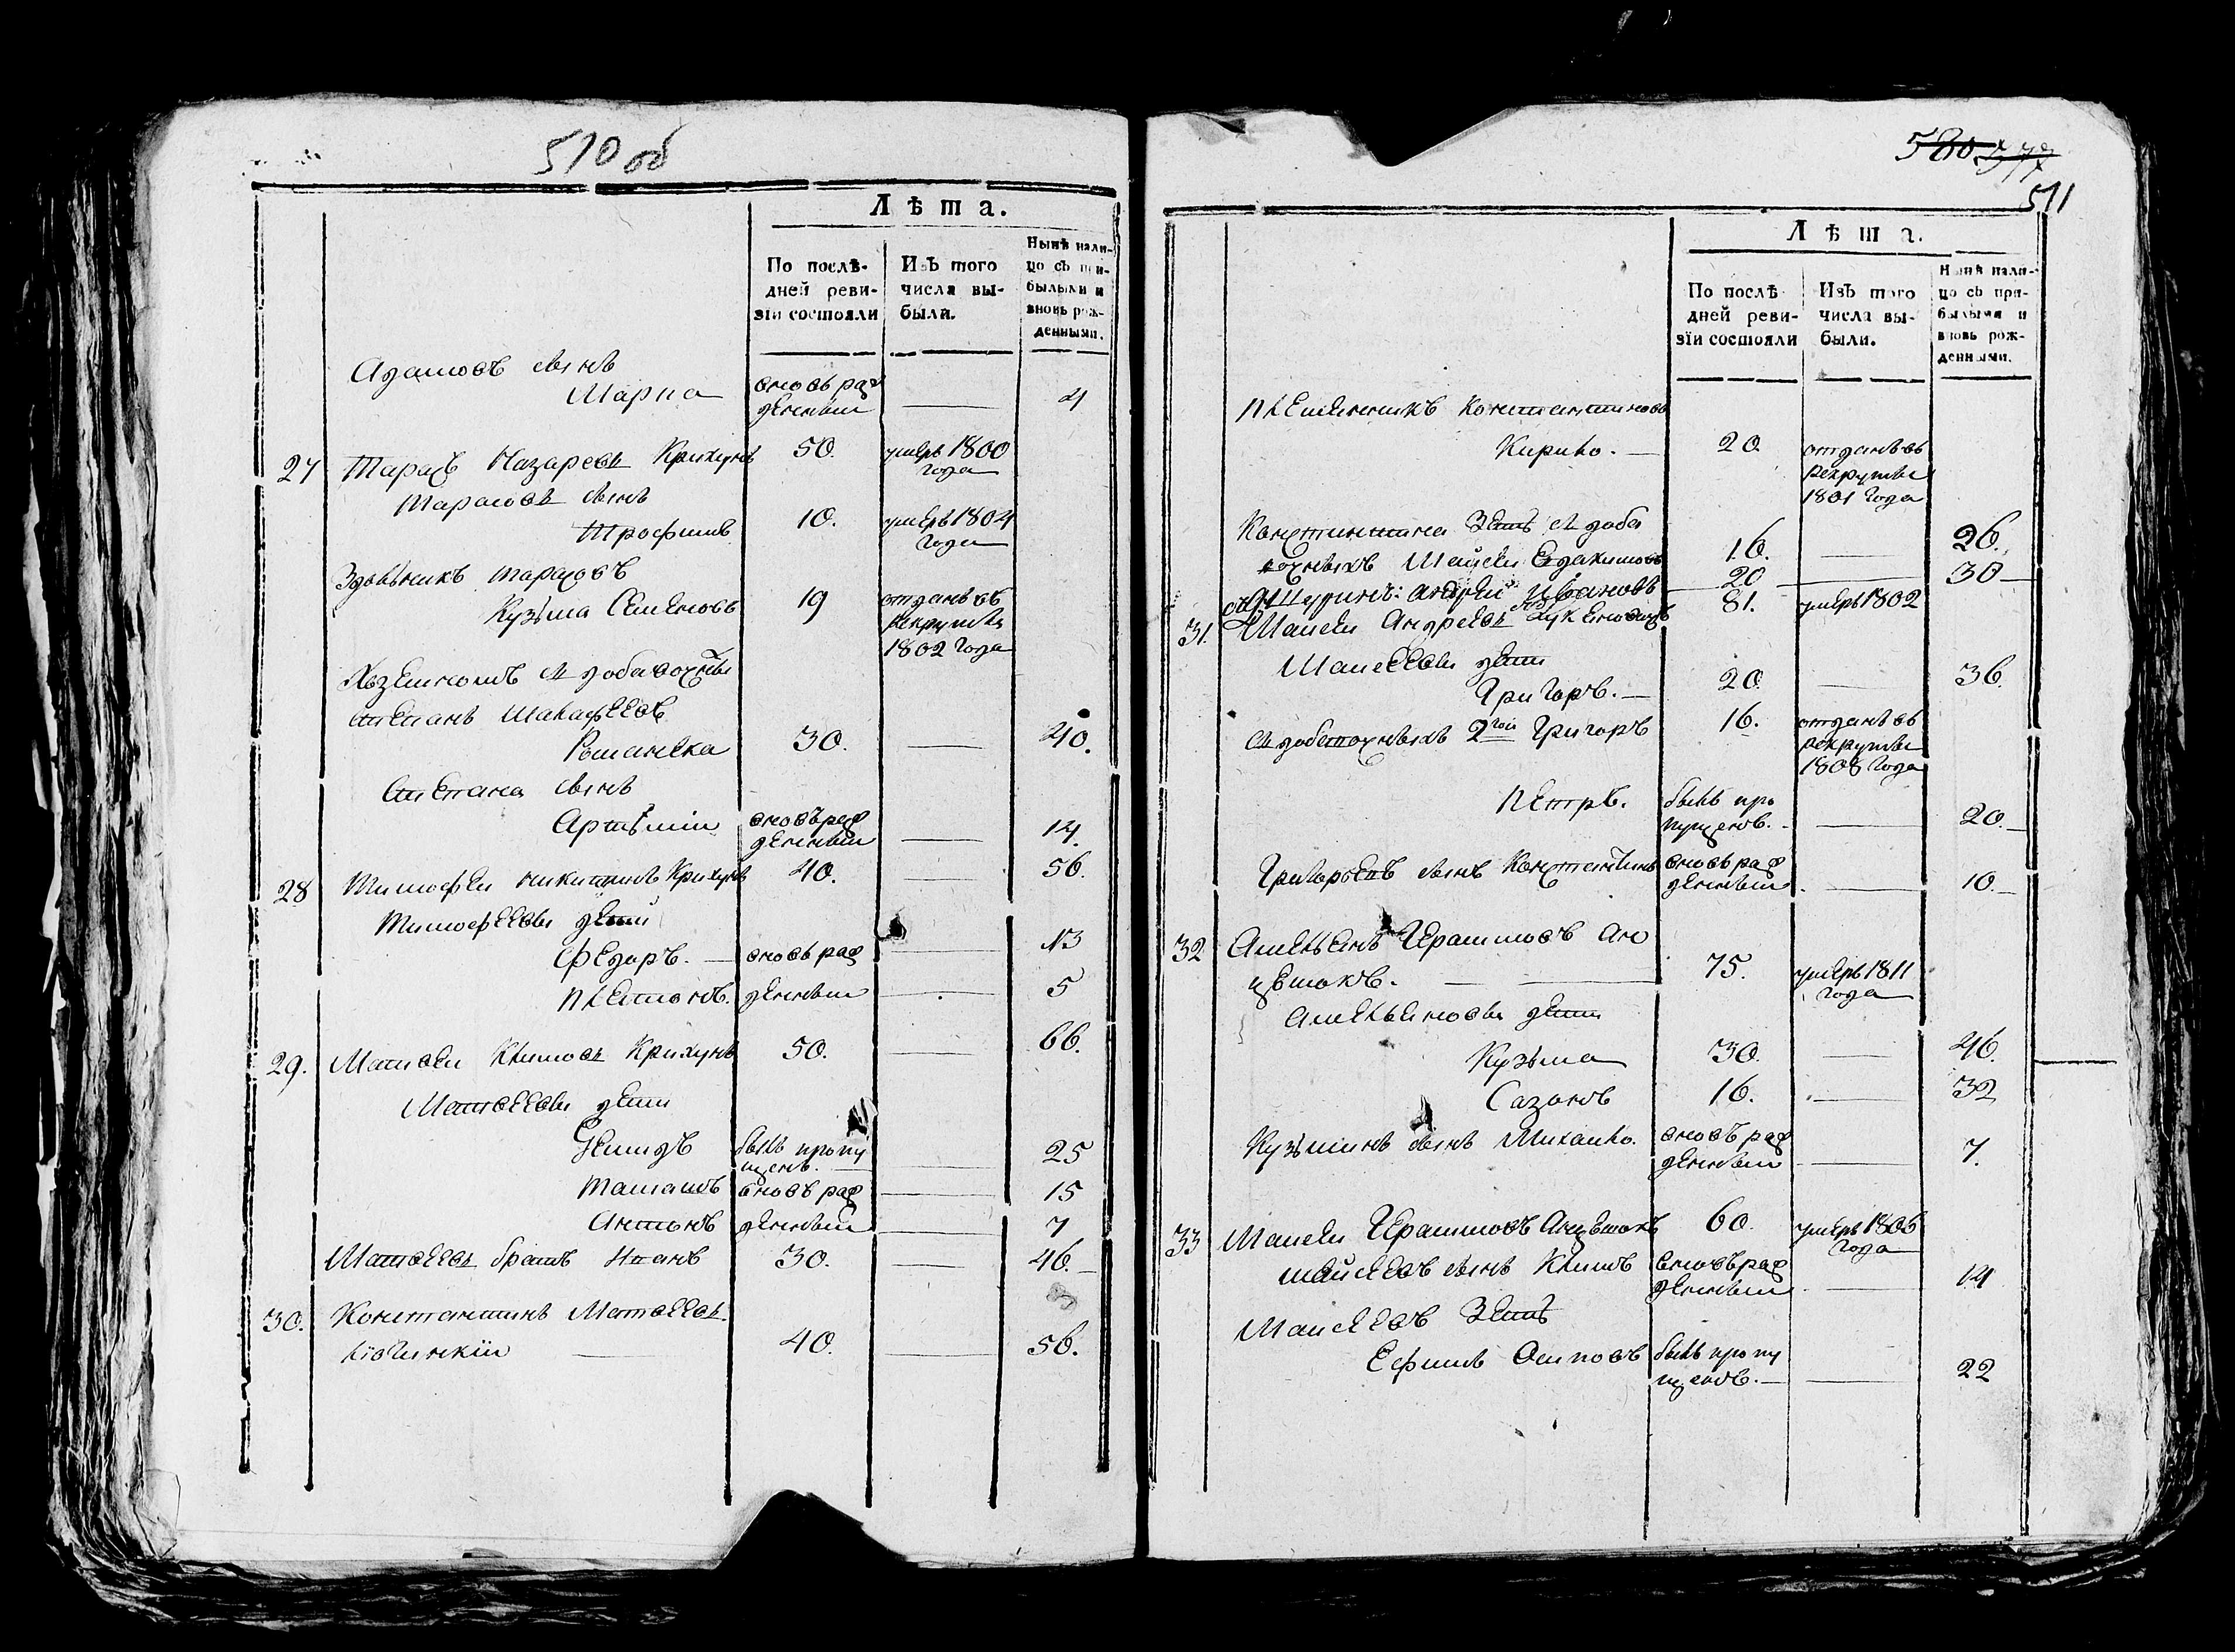 510 об
Лѣта.
По послѣ-
дней реви-
зіи состояли
Изъ того
числа вы-
были.
Нынѣ нали-
цо съ при-
былыми и
вновь рож-
денными.
Адамовъ сынъ
Марка
вновь рож
денный
4
27 Тарасъ Назаревъ Крикунъ 50. умеръ 1800
года
Тарасовъ сынъ
Трофимъ 10. умеръ 1804
года
Тарасовъ
Кузьма Семеновъ 19 отданъ въ
рекруты
1802 года
Степанъ
Романека 30. 40.
Степана сынъ
Артемiй вновь рож
денный 14.
28 Тимофей Никитинъ Крикунъ 40. 56.
Тимофеевы дети
Федоръ. вновь рож 13
Платонъ. денный 5
29. Матвей Климовъ Крикунъ 50. 66.
Матвеевы дети
Демидъ былъ пропу
щенъ. 25
вновь рож 15
Антонъ денный 7
Матвеевъ братъ Иванъ 30. 46.
30. Константинъ Матвеевъ
40. 56.
580
511
Лѣта.
По послѣ-
дней реви-
зіи состояли
Изъ того
числа вы-
были.
Нынѣ нали-
цо съ при-
былыми и
вновь рож-
денными.
племенникъ Константиновъ
Кирило. 20. отданъ въ
рекруты
1801 года
Константина Зеть
Мойсей Евдокимовъ 16. 26.
Шуринъ: андрей Ивановъ 20 30
31. Мойсей Андреевъ 81. умеръ 1802
Мойсеевы дети
Григоръ. 20. 36.
2гой Григоръ 16. отданъ въ
рекруты
1808 года
Петръ. былъ про
пущенъ. 20.
Григорьевъ сынъ Константинъ вновь рож
денный 10.
32 Емельянъ Герасимовъ Ан
цешокъ. 75. умеръ 1811
года
Емельяновы дети
Кузьма 30. 46.
Сазонъ 16. 32
Кузьминъ сынъ Михайло. вновь рож
денный 7.
33 Мойсей Герасимовъ Анцешокъ 60. умеръ 1806
года
Мойсеевъ сынъ Климъ вновь рож
денный 14
Мойсеевъ Зеть
Ефимъ Осиповъ былъ пропу
щенъ. 22